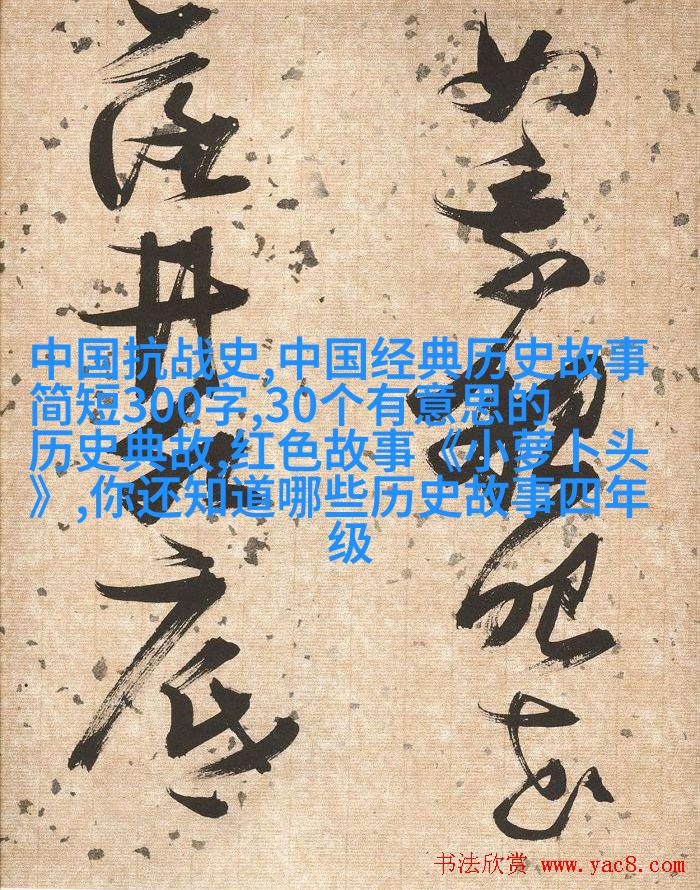 似乘船眼花
落井水底
中国抗战史,中国经典历史故事
简短300字,30个有意思的
历史典故,红色故事《小萝卜头
》,你还知道哪些历史故事四年
级
书法欣赏 www.yac8.com